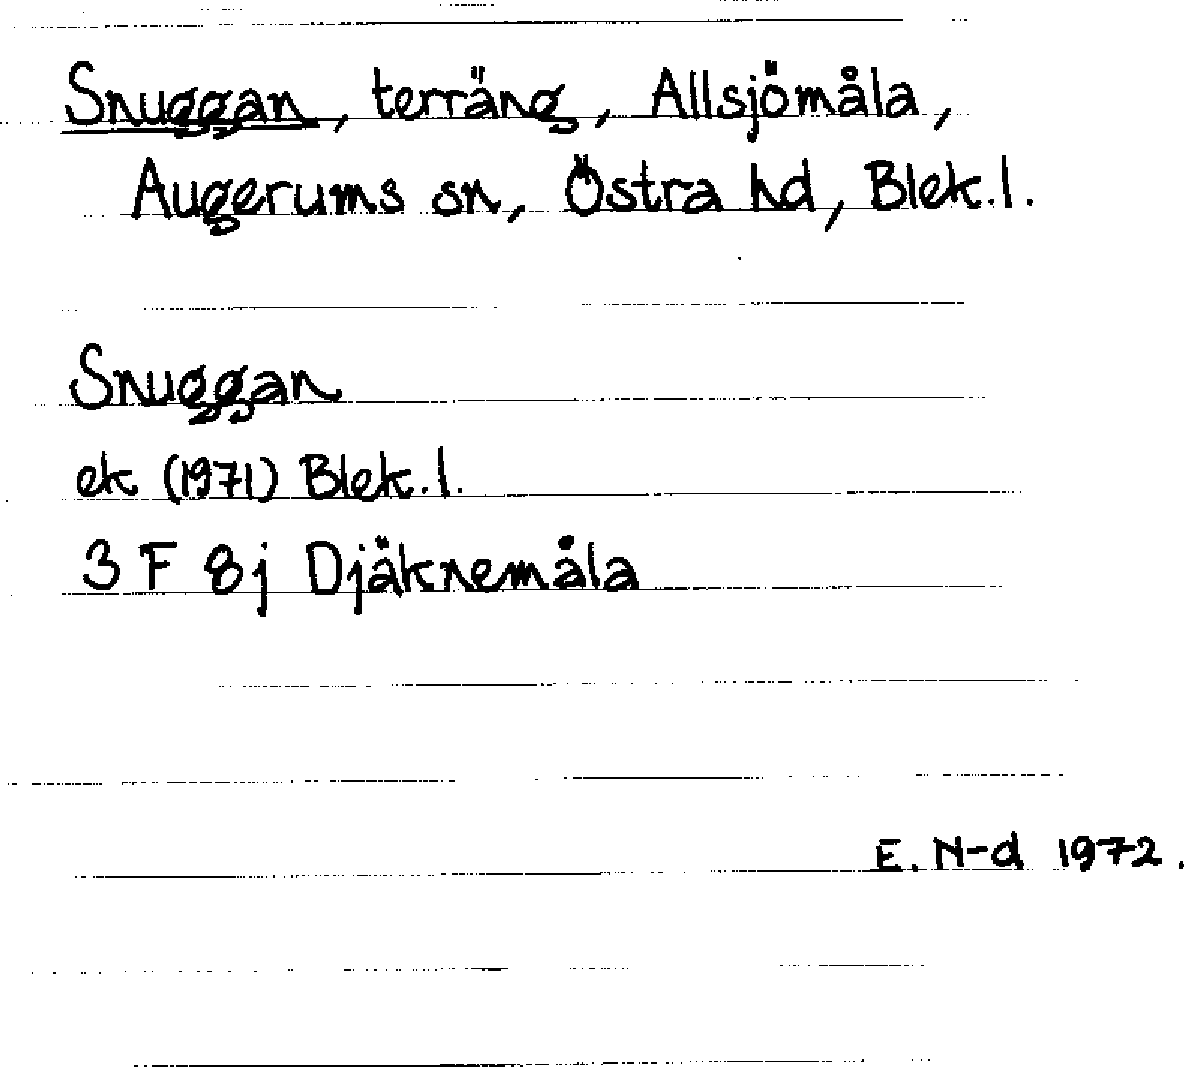 Snuggan, terräng, Allsjömåla,
Augerums sn, Östra hd, Blek.l.
Snuggan
ek (1971) Blek.l.
3 F 8j Djäknemåla
E. N-d 1972.